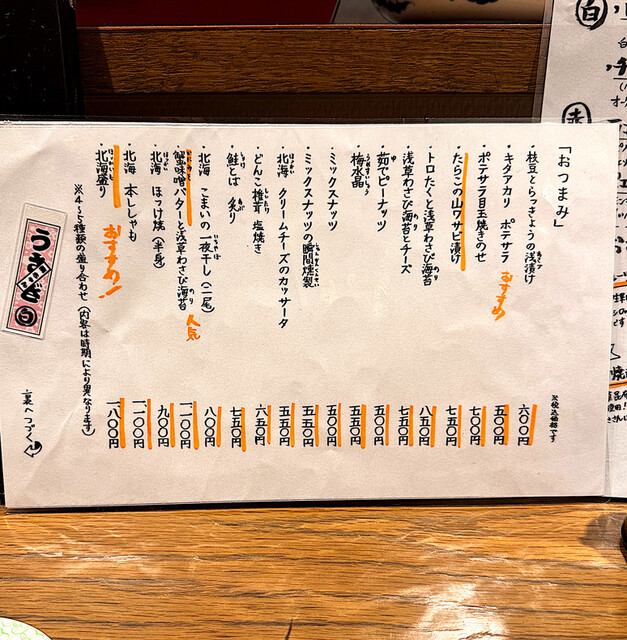 「おつまみ」
※税込価格です
・枝豆とらっきょうの浅漬け 六〇〇円
・キタアカリ ポテサラ おすすめ 五〇〇円
・ポテサラ目玉焼きのせ 七〇〇円
・たらこの山ワサビ漬け 七五〇円
・トロたくと浅草わさび海苔 八五〇円
・浅草わさび海苔とチーズ 七五〇円
・茹でピーナッツ 五〇〇円
・梅水晶 五五〇円
・ミックスナッツ 五〇〇円
・ミックスナッツの瞬間燻製 五五〇円
・北海 クリームチーズのカッサータ 五五〇円
・どんこ椎茸 塩焼き 六五〇円
・鮭とば 炙り 七五〇円
・北海 こまいの一夜干し(二尾) 八〇〇円
・蟹味噌バターと浅草わさび海苔 人気 一一〇〇円
・北海 ほっけ焼(半身) 九〇〇円
・北海 本ししゃも 一一〇〇円
・北海盛り おすすめ! 一八〇〇円
※4〜5種類の盛り合わせ(内容は時期により異なります)
裏へつづく
白
赤